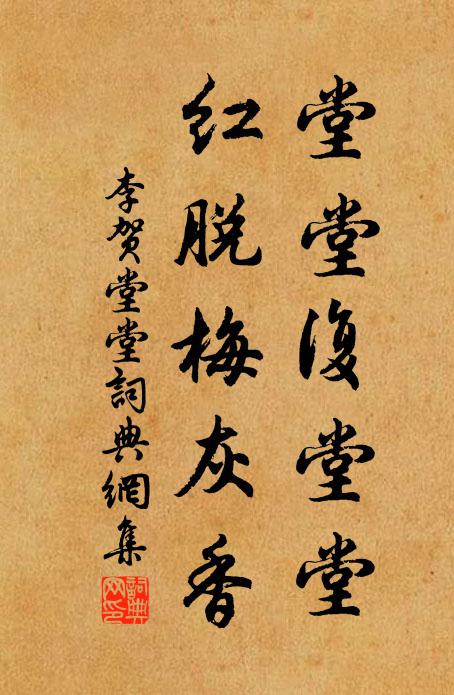 堂堂復堂堂
紅脱梅灰香
李贺堂堂詞典網集
詞典网印